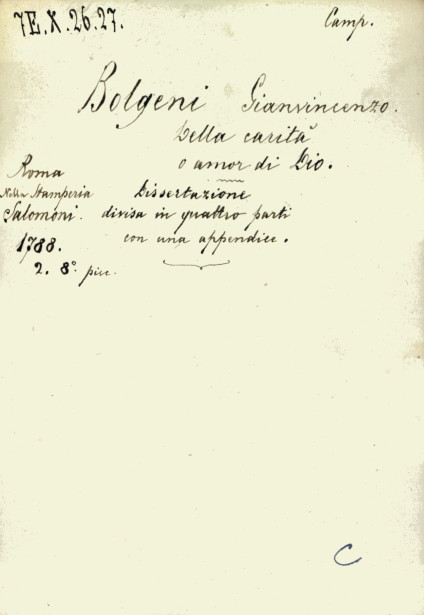 7E.X.26.27.
Camp.
Bolgeni Gianvincenzo.
Della carità
o amor di Dio.
Dissertazione
divisa in quattro parti
con una appendice.
Roma
Nella Stamperia
Salomoni.
1788.
2. 8° picc.
C